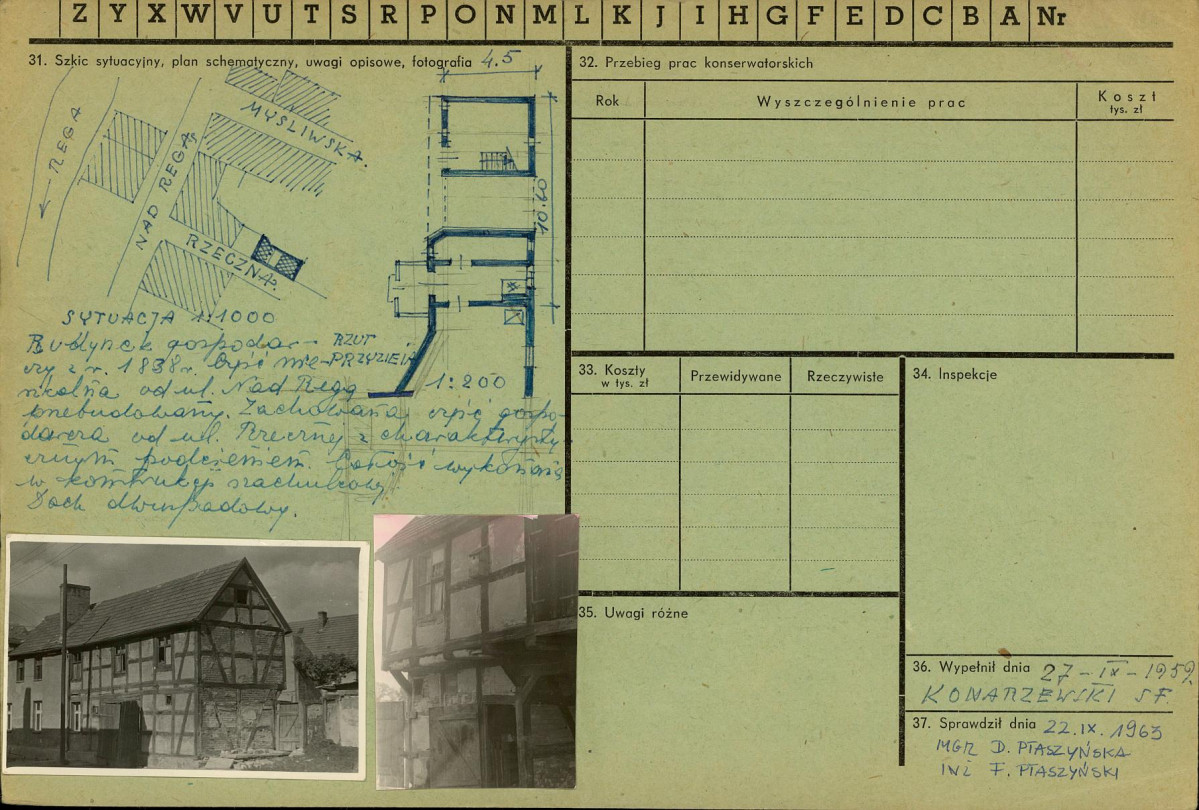 Z Y X W V U T S R P O N M L K J I H G F E D C B A Nr
31. Szkic sytuacyjny, plan schematyczny, uwagi opisowe, fotografia
4.5
MYŚLIWSKA.
← REGA
NAD REGĄ
RZECZNA
10.60
SYTUACJA 1:1000
RZUT
PRZYZIEMI
1:200
Budynek gospodar-
czy z r. 1838r. Część mie-
szkalna od ul. Nad Regą
przebudowany. Zachowana część gospo-
darcza od ul. Rzecznej z charakterysty-
cznym podcieniem. Całość wykonana
w konstrukcji szachulcowej
Dach dwuspadowy.
32. Przebieg prac konserwatorskich
Rok
Wyszczególnienie prac
Koszt
tys. zł
33. Koszty
w tys. zł
Przewidywane
Rzeczywiste
34. Inspekcje
35. Uwagi różne
36. Wypełnił dnia 27-IX-1959
KONARZEWSKI SF.
37. Sprawdził dnia 22.IX.1963
MGR D. PTASZYŃSKA
INŻ F. PTASZYŃSKI